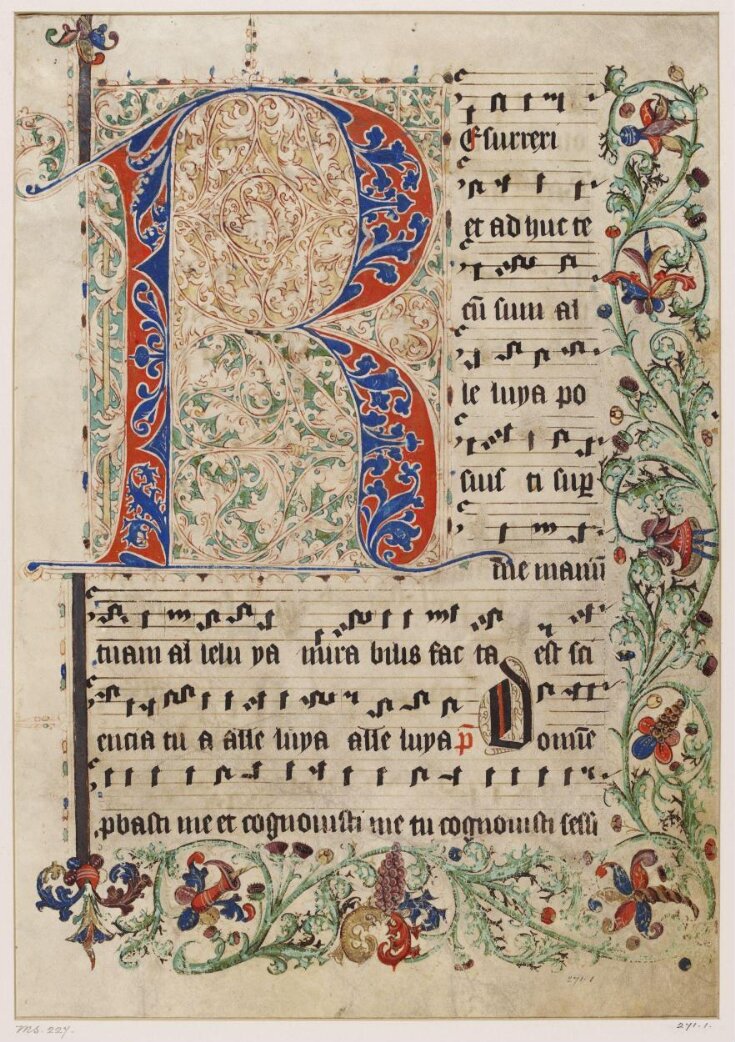 Resurrexi
et ad huc te
cū sum al
le luya po
suis ti sup
me manū
tuam al lelu ya mira bilis fac ta est sci
encia tu a alle luya alle luya p̄ Domine
pbasti me et cognouisti me tu cognouisti sessi
271.1
Ms. 227.
271.1.